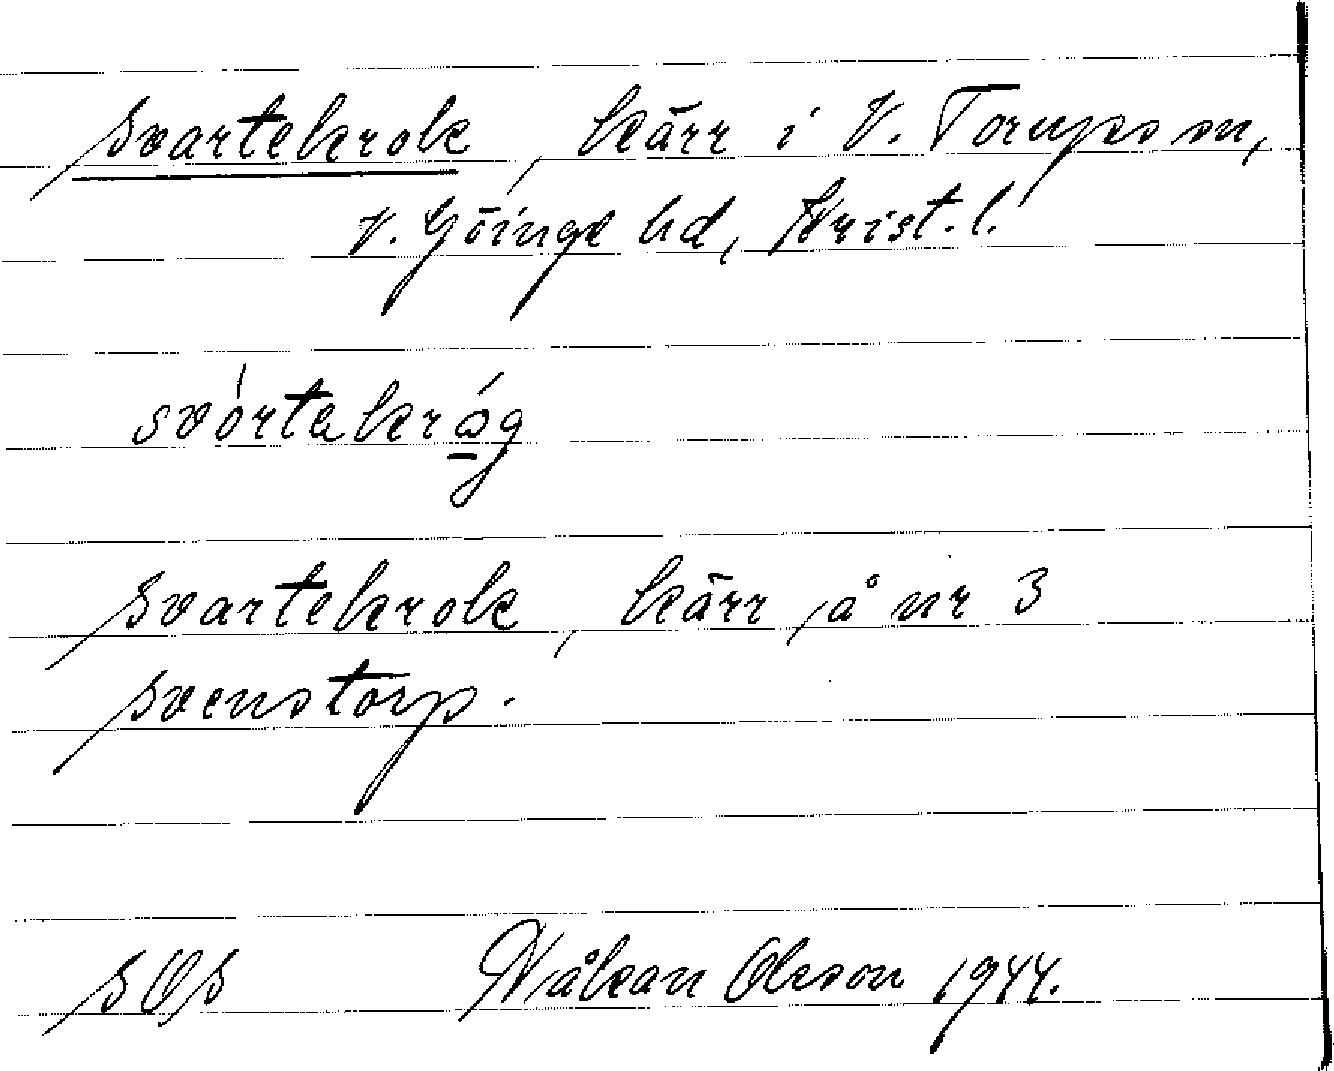 Svartekrok, kärr i V. Torups sn,
V. Göinge hd, Krist. l.
svórtakrǫ́g
Svartekrok, kärr, å nr 3
Svenstorp.
SOS Håkan Olsson 1944.